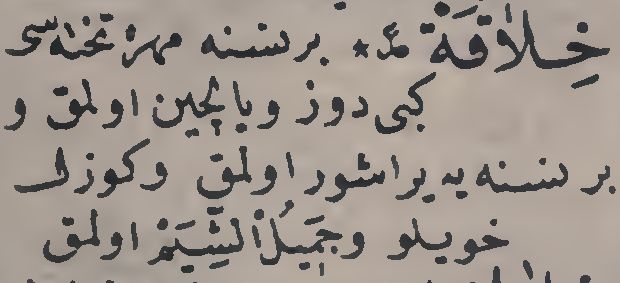 خِلَاقَةٌ ع * بر نسنه مهره تخته‌سی
كبی دوز و یالچین اولمق و
بر نسنه یه یراشور اولمق و كوزل
خویلو و جَمِیلُ الشِّیَمْ اولمق